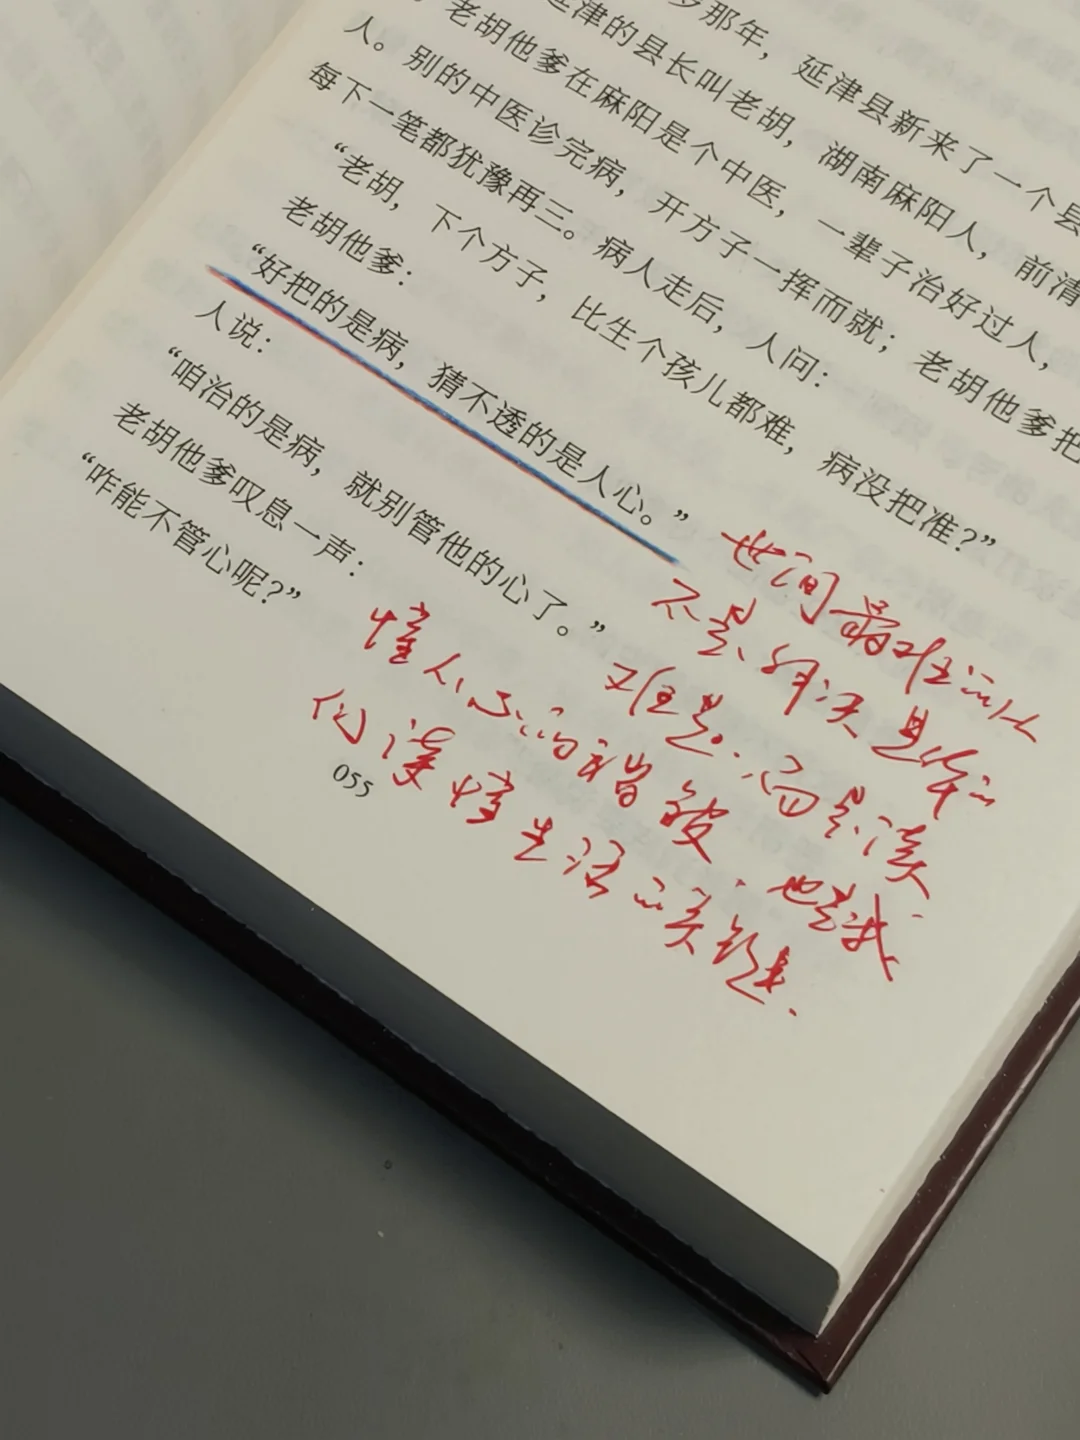 岁那年，延津县新来了一个县
延津的县长叫老胡，湖南麻阳人，前清
老胡他爹在麻阳是个中医，一辈子治好过人，
人。别的中医诊完病，开方子一挥而就；老胡他爹把
每下一笔都犹豫再三。病人走后，人问：
“老胡，下个方子，比生个孩儿都难，病没把准？”
老胡他爹：
“好把的是病，猜不透的是人心。”
人说：
“咱治的是病，就别管他的心了。”
老胡他爹叹息一声：
“咋能不管心呢？”
世间最难的从
不是解决具体的
难题.而是读
懂人心的褶皱.也是我
们读懂生活的关键.
055